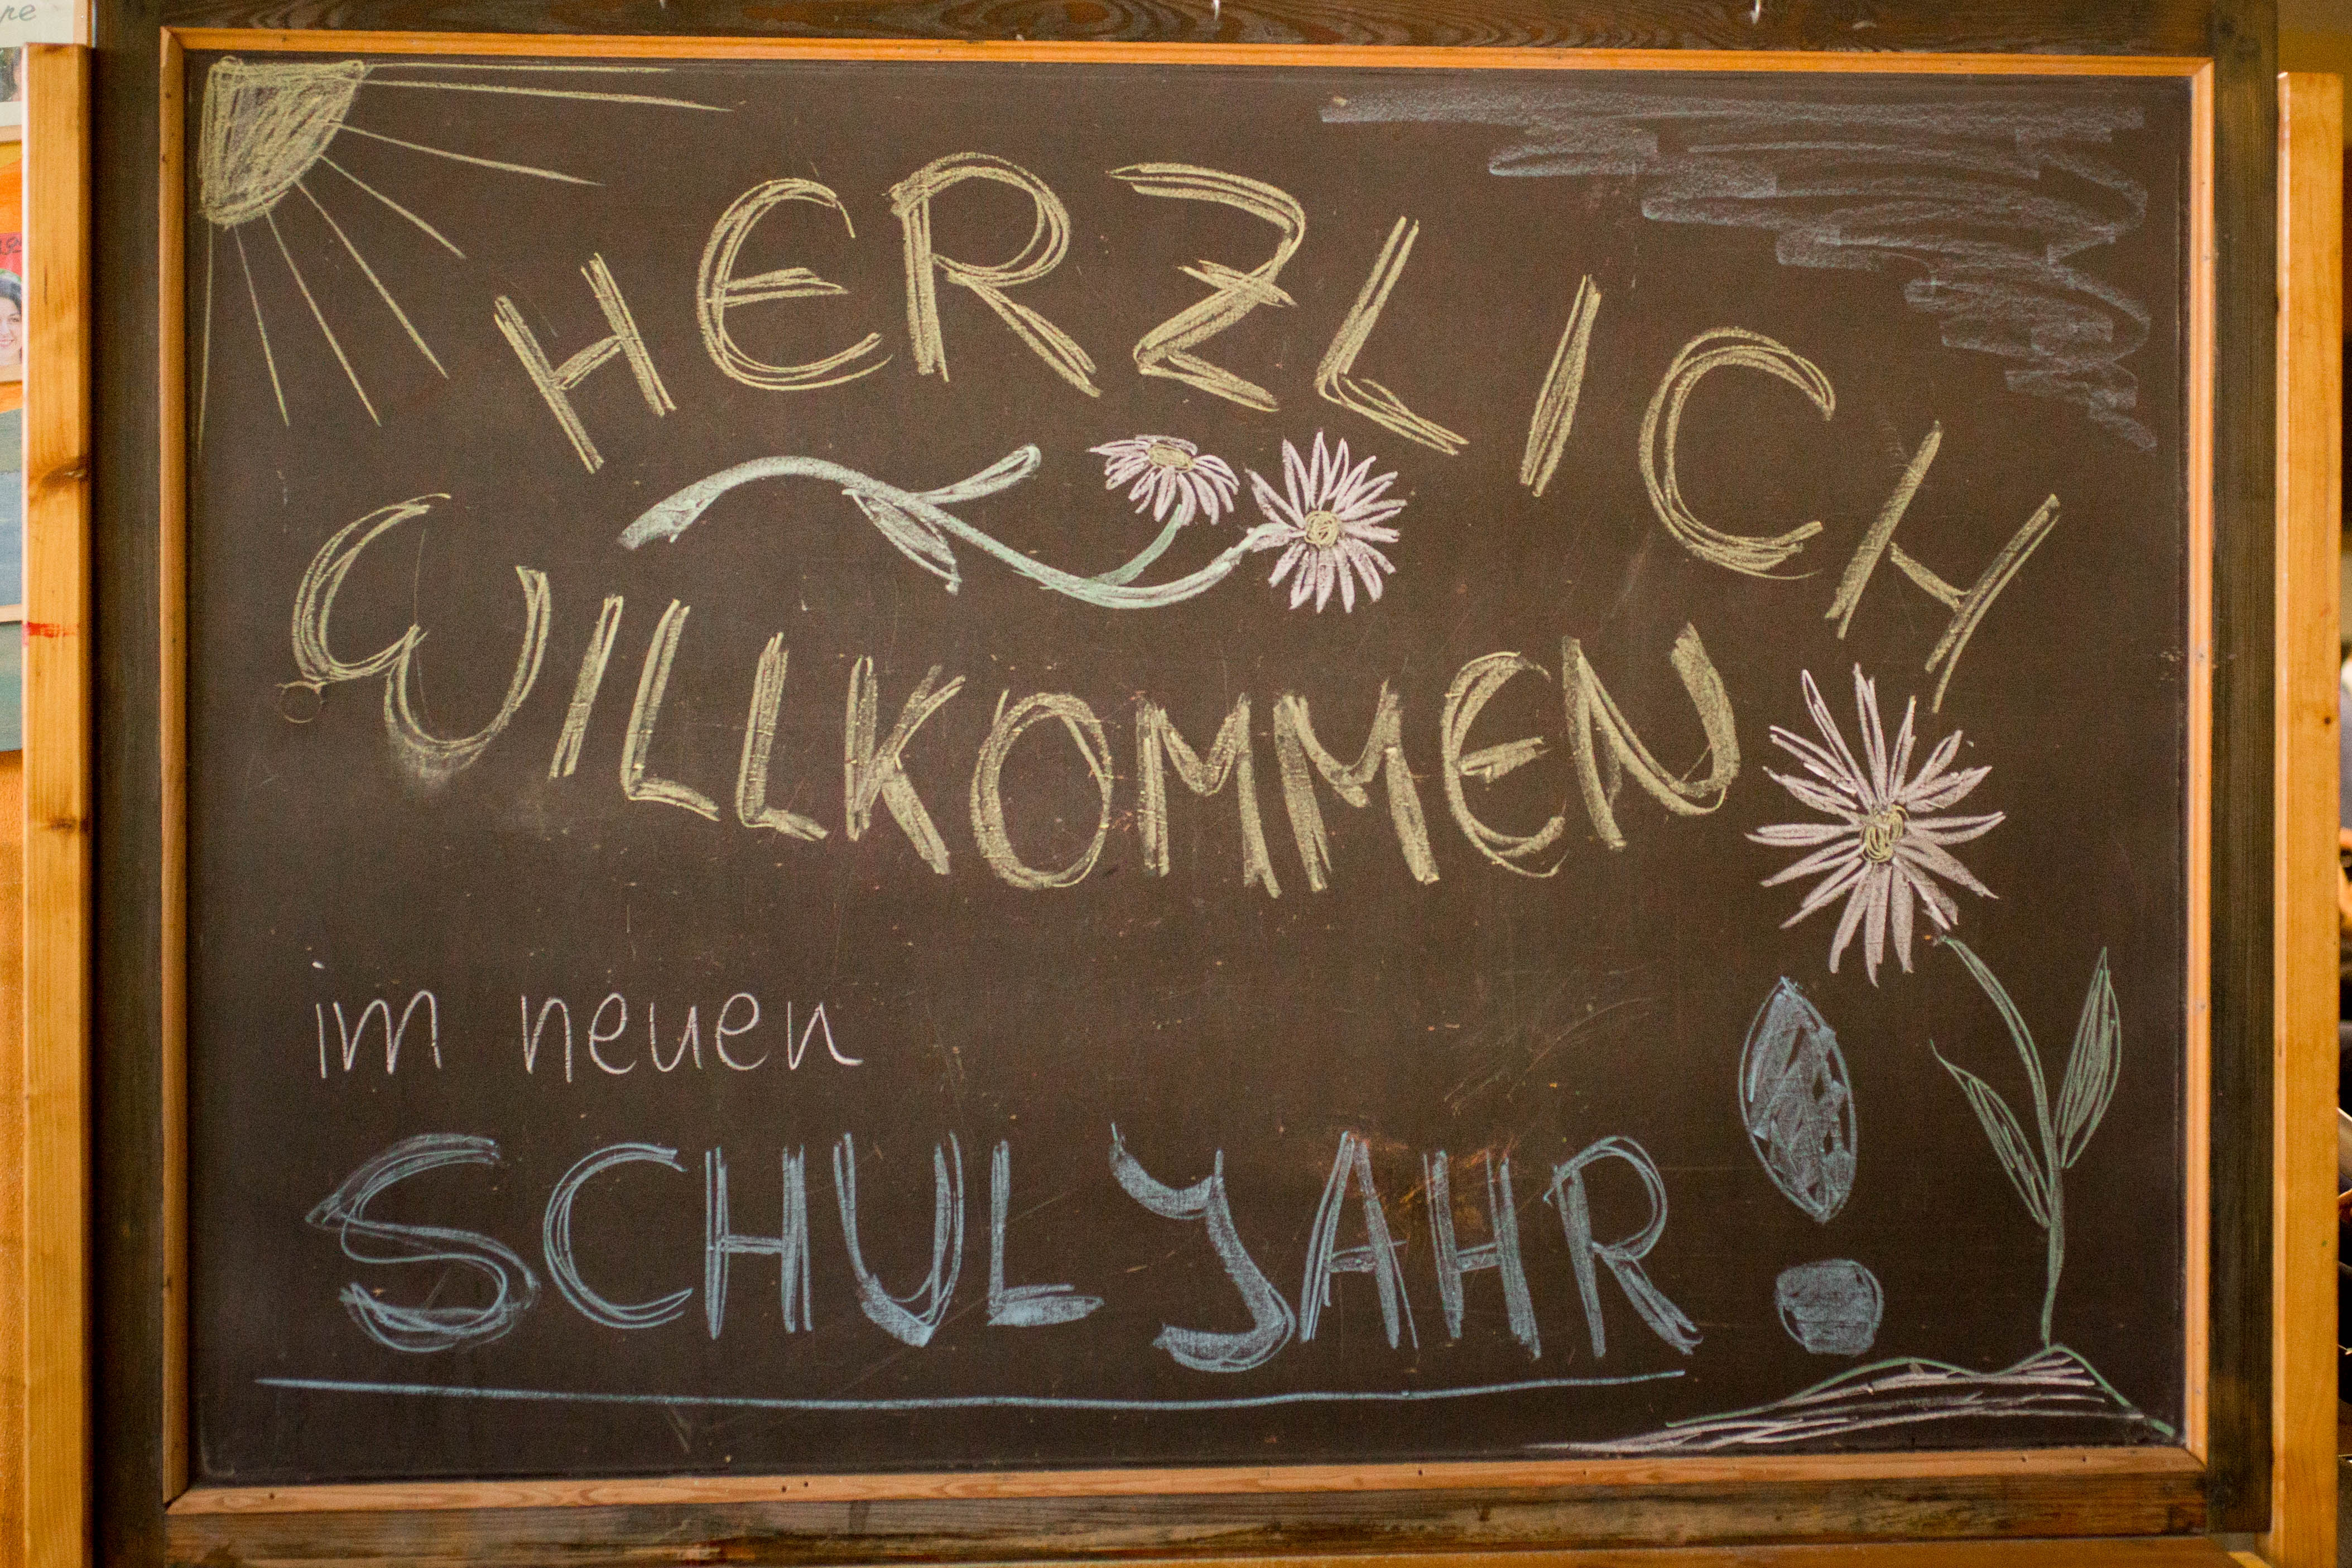 HERZLICH
WILLKOMMEN
im neuen
SCHULJAHR!